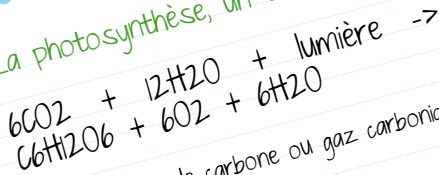 La photosynthèse, un
6CO2 + 12H2O + lumière ->
C6H12O6 + 6O2 + 6H2O
carbone ou gaz carbonic